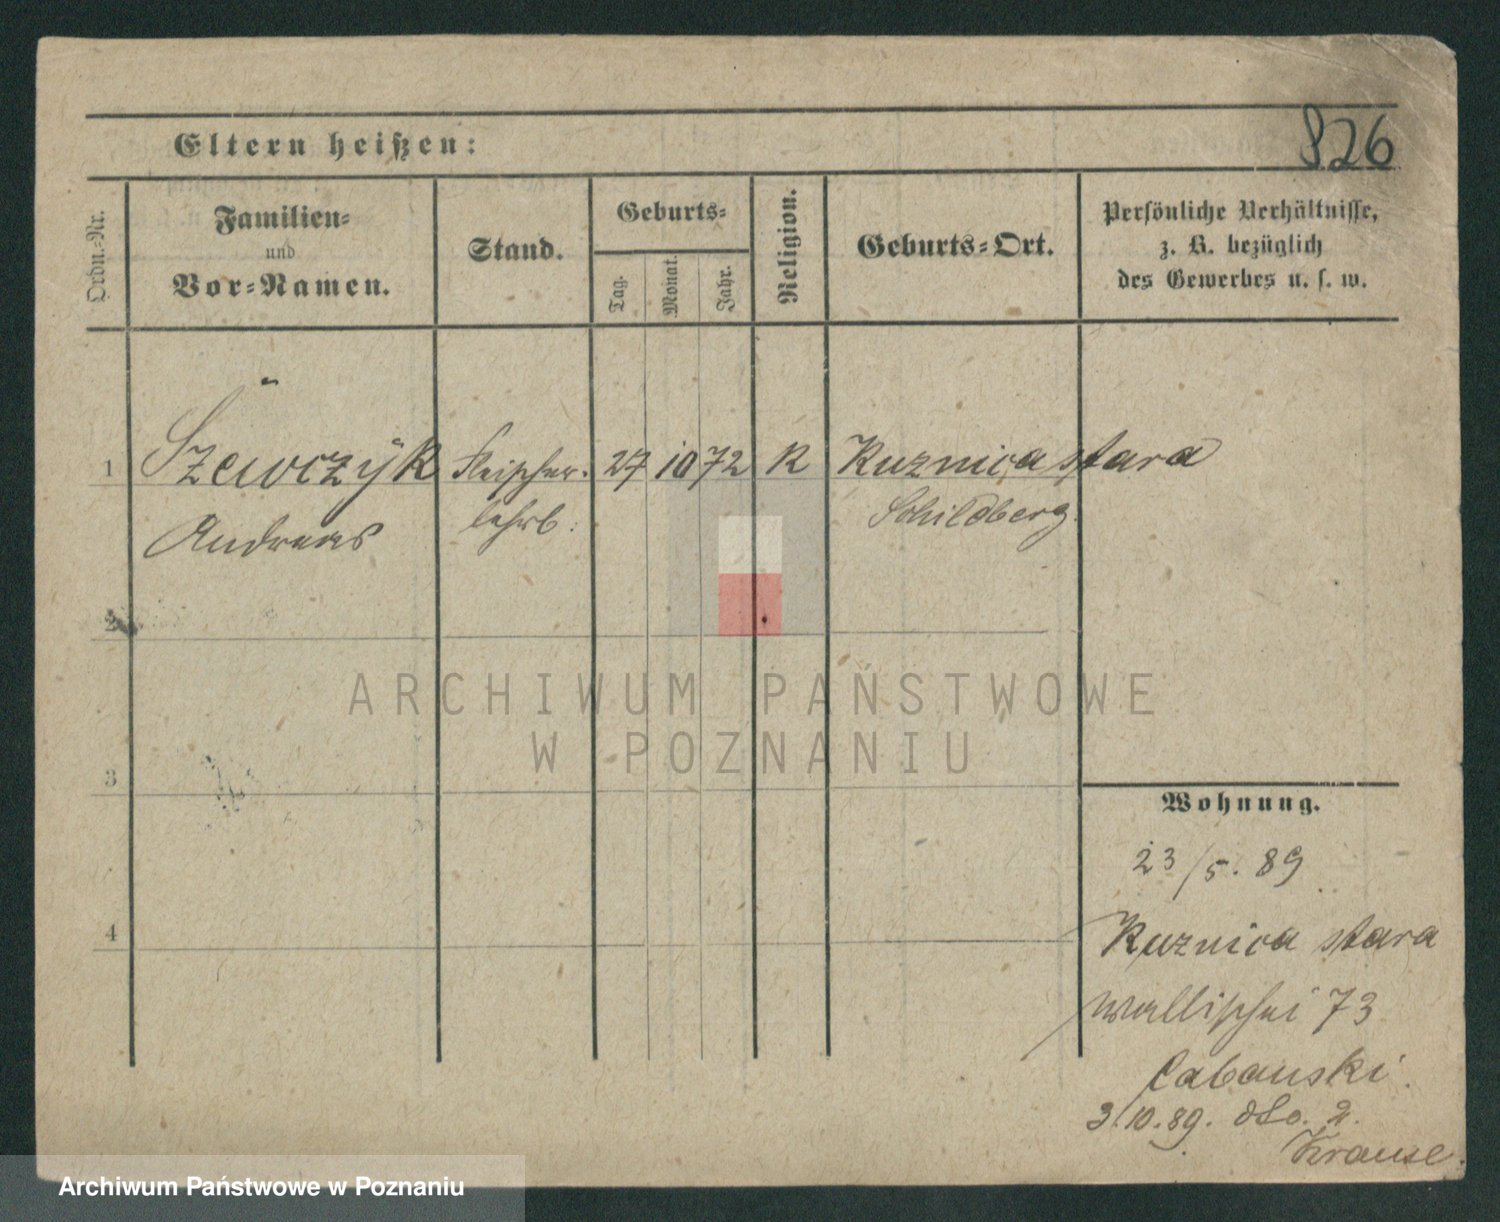 826
Eltern heißen:
Ordn.-Nr.
Familien-
und
Vor-Namen.
Stand.
Geburts-
Tag.
Monat.
Jahr.
Religion.
Geburts-Ort.
Persönliche Verhältnisse,
z. B. bezüglich
des Gewerbes u. s. w.
1 Szewczÿk Fleischer- 27 10 72 K Kuznica stara
Andreas lehrb. Schildberg.
2
3
4
Wohnung.
23/5. 89
Kuznica stara
Wallischei 73
Cabanski.
3.10.89. dto. 2.
Krause.
ARCHIWUM PAŃSTWOWE
W POZNANIU
Archiwum Państwowe w Poznaniu